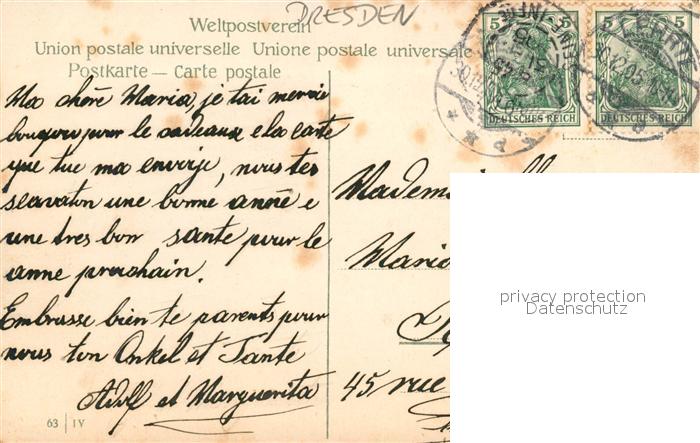 DRESDEN
Weltpostverein
Union postale universelle Unione postale universale
Postkarte — Carte postale
5 5 5 5
DEUTSCHES REICH DEUTSCHES REICH
Ma chère Maria, je tai mercie
boucoup pour le cadeaux e la carte
que tue ma envoije, nous tes
une bonne année e
une tres bon sante pour le
anne prochain.
Embrasse bien te parents pour
nous ton Onkel et Tante
Adolf et Marguerita
Mademoiselle
Maria
45 rue
privacy protection
Datenschutz
63 | IV